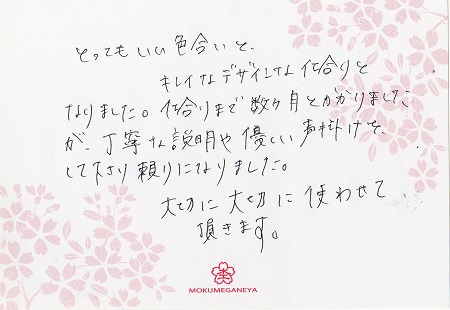 とってもいい色合いと、
キレイなデザインな仕合りと
なりました。仕合りまで数ヶ月とかかりました
が、丁寧な説明や優しい声掛けを
して下さり頼りになりました。
大切に大切に使わせて
頂きます。
MOKUMEGANEYA